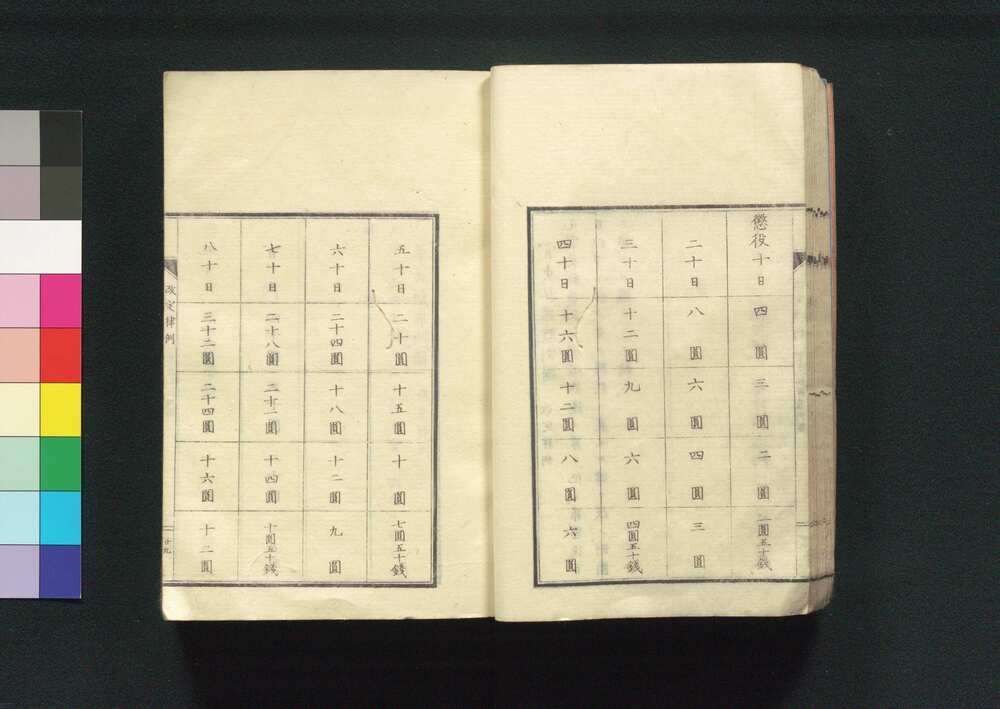 懲役十日 四圓 三圓 二圓 一圓五十錢
二十日 八圓 六圓 四圓 三圓
三十日 十二圓 九圓 六圓 四圓五十錢
四十日 十六圓 十二圓 八圓 六圓
五十日 二十圓 十五圓 十圓 七圓五十錢
六十日 二十四圓 十八圓 十二圓 九圓
七十日 二十八圓 二十一圓 十四圓 十圓五十錢
八十日 三十二圓 二十四圓 十六圓 十二圓
改定律例
廿九